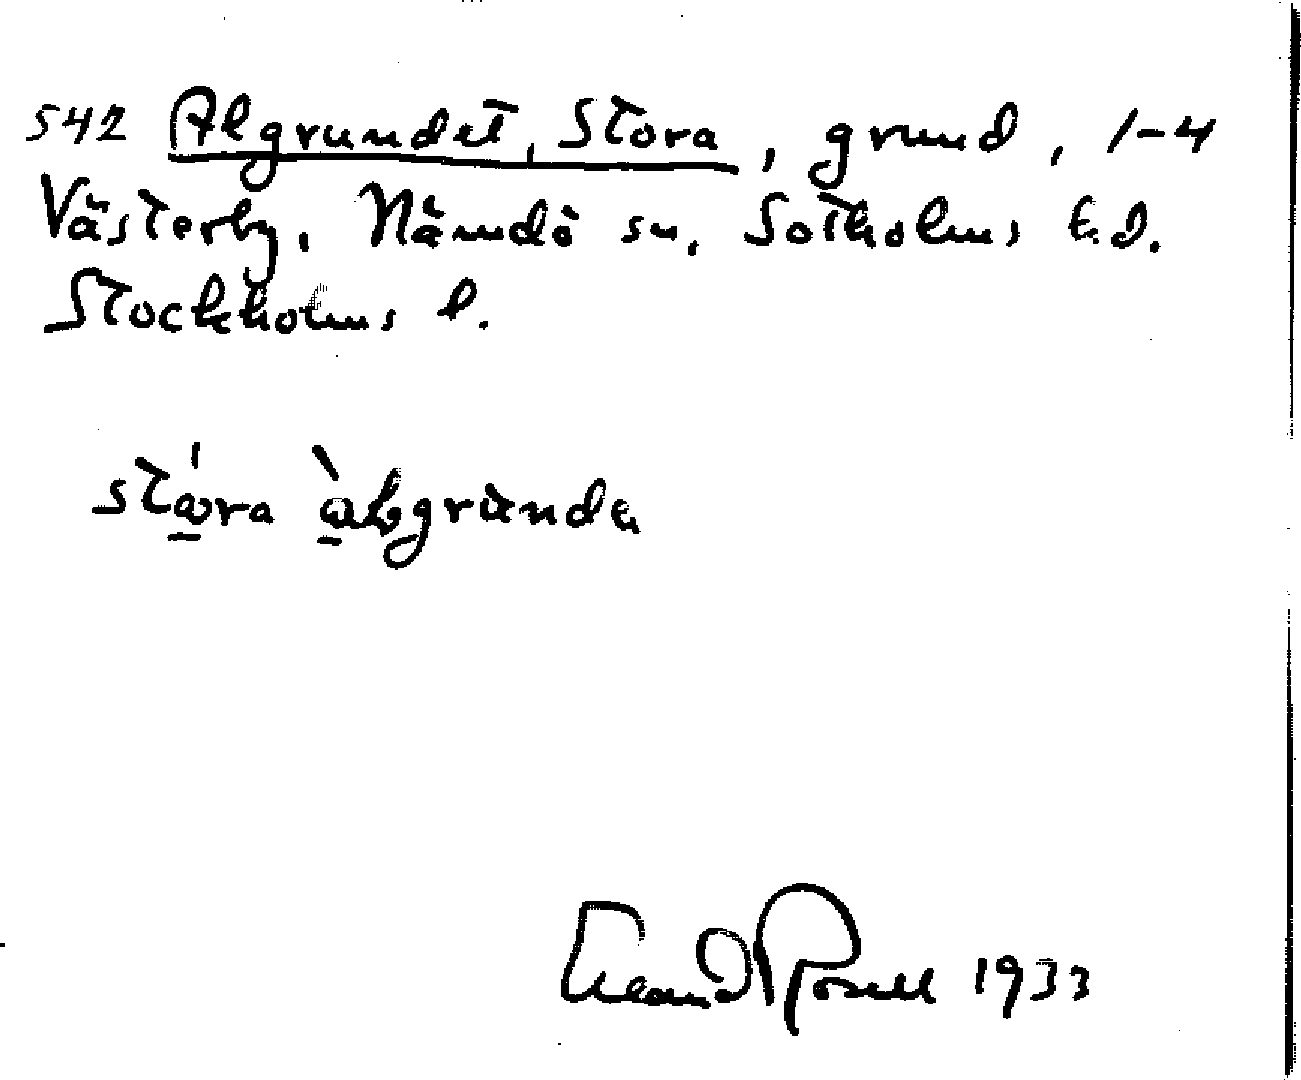 542 Algrundet, Stora, grund, 1-4
Västerby, Nämdö sn, Sotholms hd.
Stockholms l.
stώ̱ra
Rosell 1933